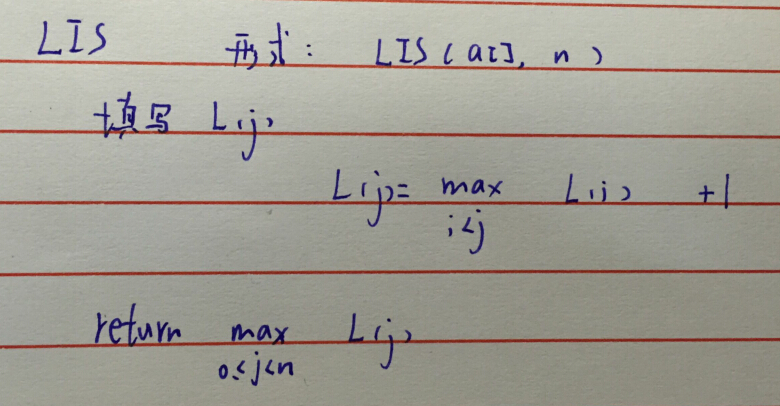 LIS 形式: LIS(a[], n)
填写 L(j)
L(j)= max L(i) +1
i<j
return max L(j)
0≤j<n